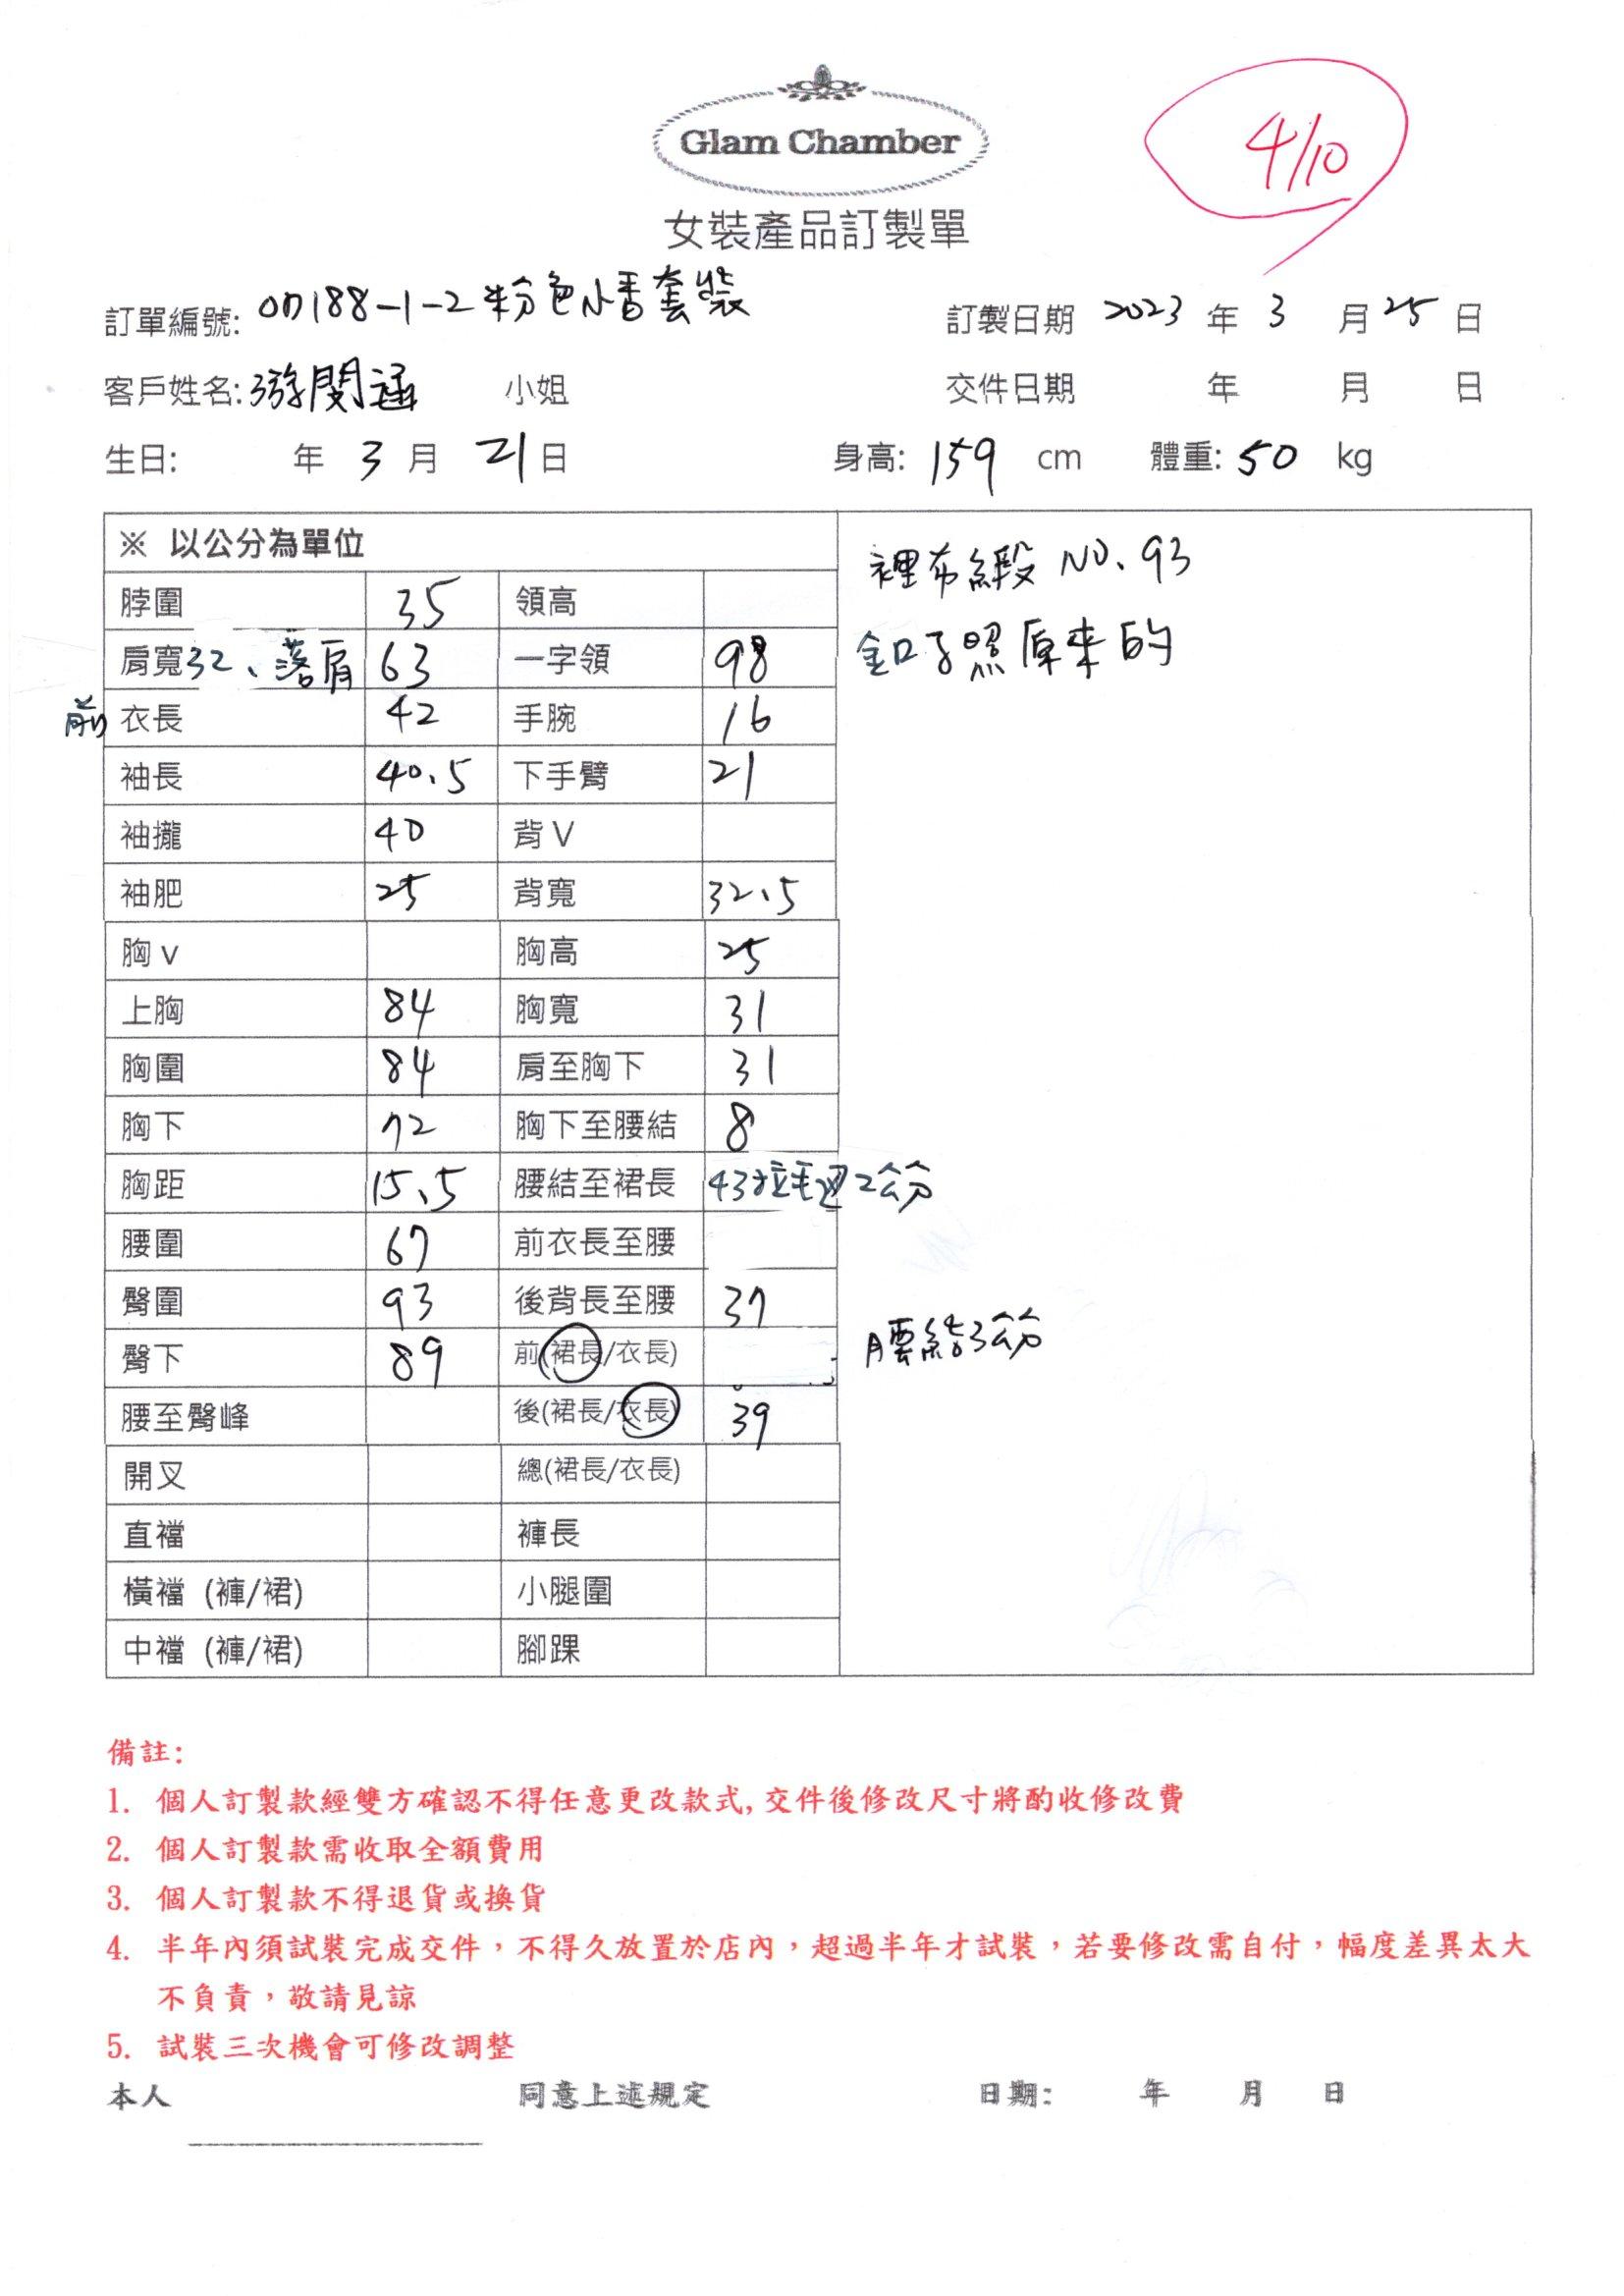 Glam Chamber
4/10
女裝產品訂製單
訂單編號: 07188-1-2 粉色小香套裝 訂製日期 2023 年 3 月 25 日
客戶姓名: 游閔涵 小姐 交件日期 年 月 日
生日: 年 3 月 21 日 身高: 159 cm 體重: 50 kg
※ 以公分為單位
裡布緞 NO. 93
脖圍 35 領高
肩寬 32、落肩 63 一字領 98
釦子照原來的
前 衣長 42 手腕 16
袖長 40.5 下手臂 21
袖攏 40 背V
袖肥 25 背寬 32.5
胸v 胸高 25
上胸 84 胸寬 31
胸圍 84 肩至胸下 31
胸下 72 胸下至腰結 8
胸距 15.5 腰結至裙長 43 2公分
腰圍 67 前衣長至腰
臀圍 93 後背長至腰 37
臀下 89 前(裙長/衣長)
腰結3公分
腰至臀峰 後(裙長/衣長) 39
開叉 總(裙長/衣長)
直襠 褲長
橫襠 (褲/裙) 小腿圍
中襠 (褲/裙) 腳踝
備註:
1. 個人訂製款經雙方確認不得任意更改款式,交件後修改尺寸將酌收修改費
2. 個人訂製款需收取全額費用
3. 個人訂製款不得退貨或換貨
4. 半年內須試裝完成交件，不得久放置於店內，超過半年才試裝，若要修改需自付，幅度差異太大
不負責，敬請見諒
5. 試裝三次機會可修改調整
本人 同意上述規定 日期: 年 月 日